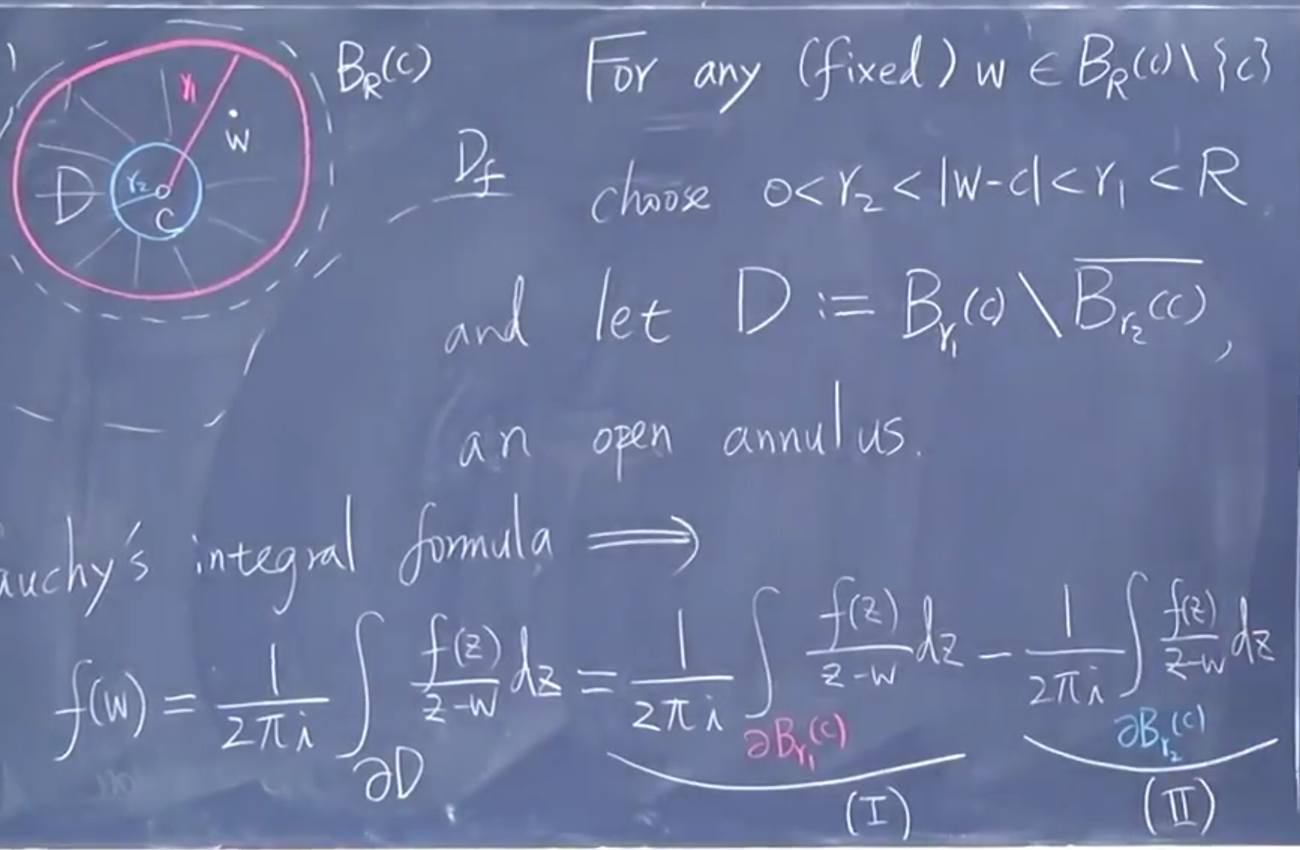 B_R(c)
r₁
w
D
r₂
c
D_f
For any (fixed) w ∈ B_R(c) \ {c}
choose 0 < r₂ < |w-c| < r₁ < R
and let D := B_{r₁}(c) \ \overline{B_{r₂}(c)},
an open annulus.
auchy's integral formula ⟹
f(w) = \frac{1}{2πi} ∫_{∂D} \frac{f(z)}{z-w} dz = \frac{1}{2πi} ∫_{∂B_{r₁}(c)} \frac{f(z)}{z-w} dz - \frac{1}{2πi} ∫_{∂B_{r₂}(c)} \frac{f(z)}{z-w} dz
(I) (II)